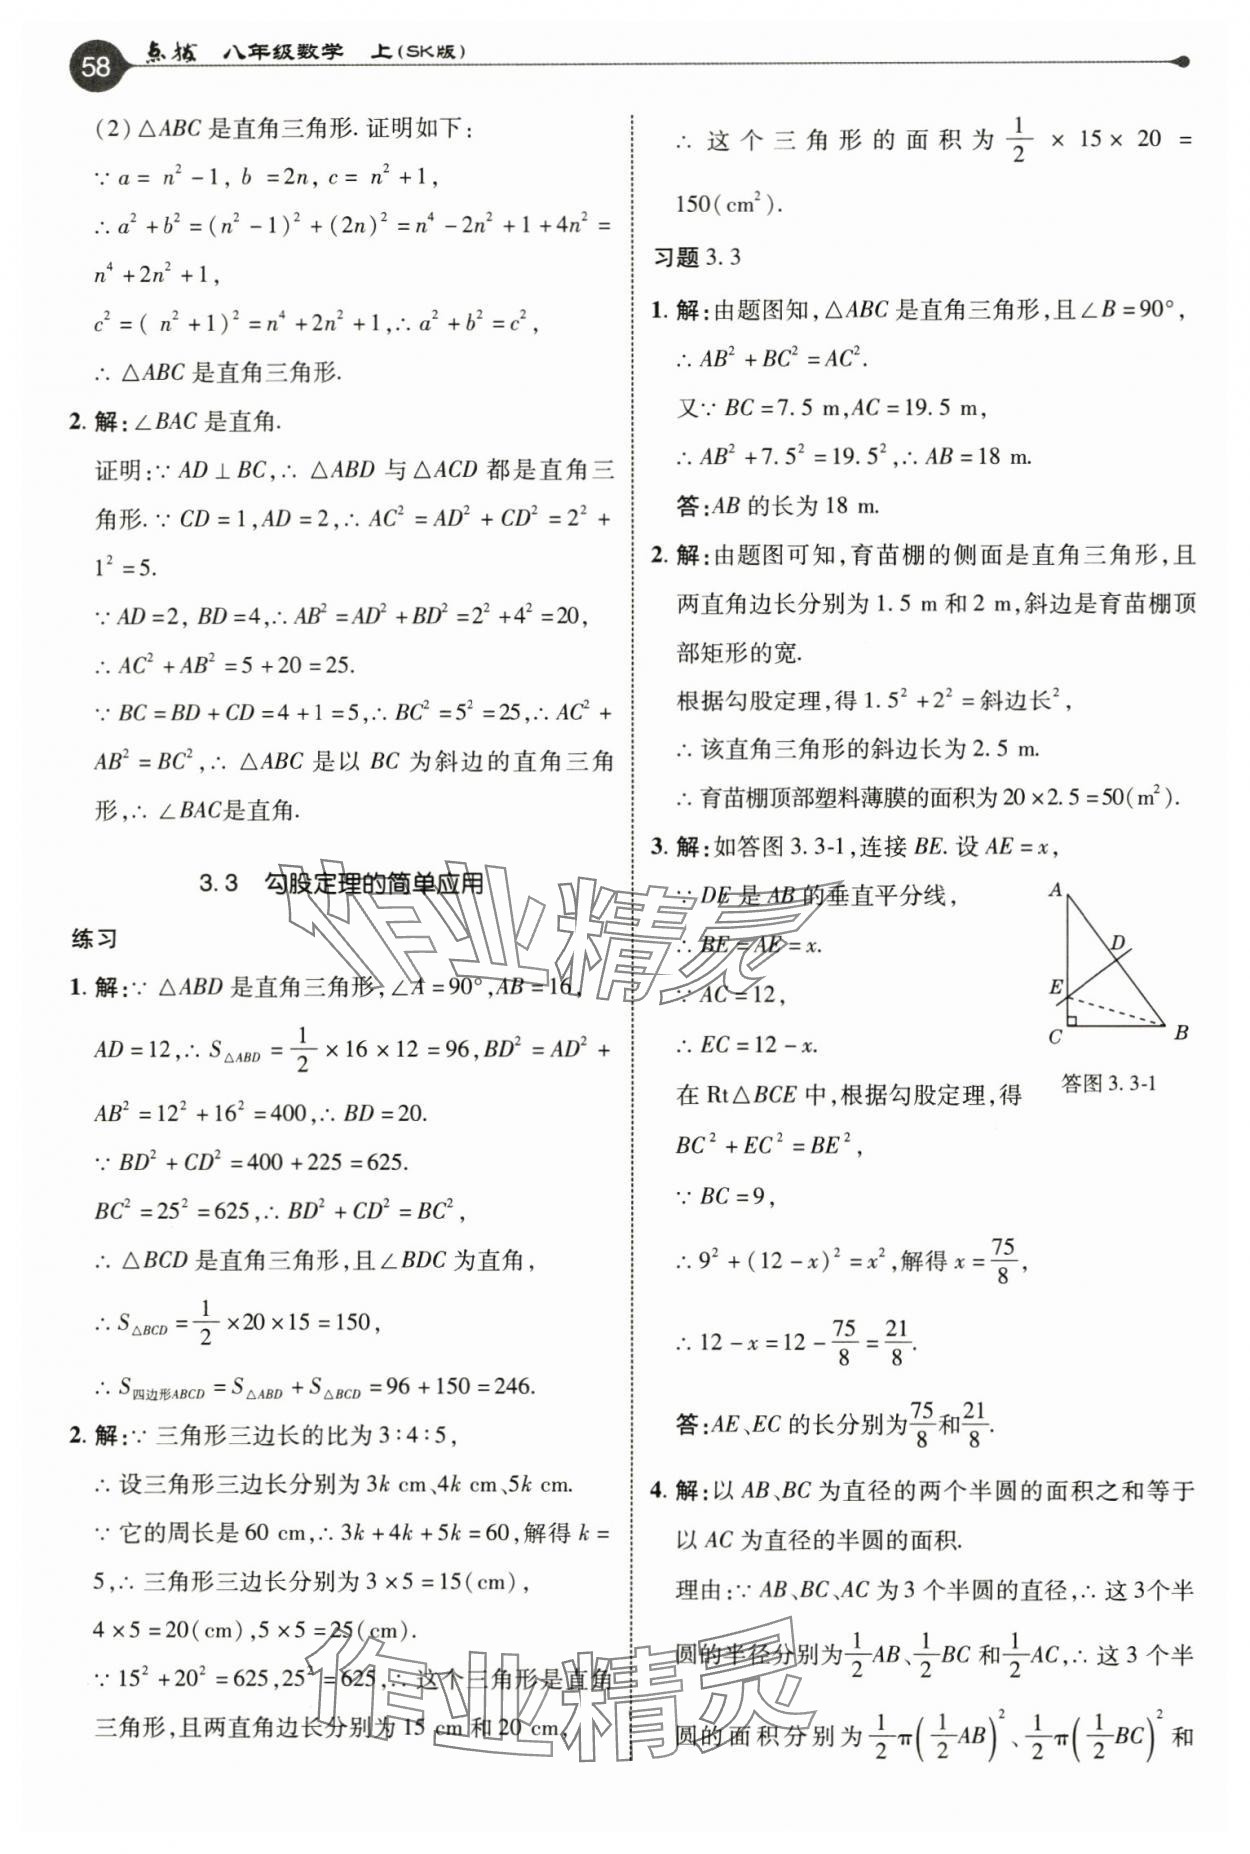 58 点拨 八年级数学 上(SK版)
(2)△ABC 是直角三角形. 证明如下：
∵ a = n² - 1, b = 2n, c = n² + 1,
∴ a² + b² = (n² - 1)² + (2n)² = n⁴ - 2n² + 1 + 4n² =
n⁴ + 2n² + 1,
c² = ( n² + 1)² = n⁴ + 2n² + 1, ∴ a² + b² = c²,
∴ △ABC 是直角三角形.
2. 解：∠BAC 是直角.
证明：∵ AD ⊥ BC, ∴ △ABD 与 △ACD 都是直角三
角形. ∵ CD = 1, AD = 2, ∴ AC² = AD² + CD² = 2² +
1² = 5.
∵ AD = 2, BD = 4, ∴ AB² = AD² + BD² = 2² + 4² = 20,
∴ AC² + AB² = 5 + 20 = 25.
∵ BC = BD + CD = 4 + 1 = 5, ∴ BC² = 5² = 25, ∴ AC² +
AB² = BC², ∴ △ABC 是以 BC 为斜边的直角三角
形, ∴ ∠BAC是直角.
3.3 勾股定理的简单应用
练习
1. 解：∵ △ABD 是直角三角形, ∠A = 90°, AB = 16,
AD = 12, ∴ S△ABD = 1/2 × 16 × 12 = 96, BD² = AD² +
AB² = 12² + 16² = 400, ∴ BD = 20.
∵ BD² + CD² = 400 + 225 = 625.
BC² = 25² = 625, ∴ BD² + CD² = BC²,
∴ △BCD 是直角三角形, 且∠BDC 为直角,
∴ S△BCD = 1/2 × 20 × 15 = 150,
∴ S四边形ABCD = S△ABD + S△BCD = 96 + 150 = 246.
2. 解：∵ 三角形三边长的比为 3∶4∶5,
∴ 设三角形三边长分别为 3k cm、4k cm、5k cm.
∵ 它的周长是 60 cm, ∴ 3k + 4k + 5k = 60, 解得 k =
5, ∴ 三角形三边长分别为 3 × 5 = 15(cm),
4 × 5 = 20(cm), 5 × 5 = 25(cm).
∵ 15² + 20² = 625, 25² = 625, ∴ 这个三角形是直角
三角形, 且两直角边长分别为 15 cm 和 20 cm,
∴ 这个三角形的面积为 1/2 × 15 × 20 =
150(cm²).
习题 3.3
1. 解：由题图知, △ABC 是直角三角形, 且∠B = 90°,
∴ AB² + BC² = AC².
又∵ BC = 7.5 m, AC = 19.5 m,
∴ AB² + 7.5² = 19.5², ∴ AB = 18 m.
答：AB 的长为 18 m.
2. 解：由题图可知, 育苗棚的侧面是直角三角形, 且
两直角边长分别为 1.5 m 和 2 m, 斜边是育苗棚顶
部矩形的宽.
根据勾股定理, 得 1.5² + 2² = 斜边长²,
∴ 该直角三角形的斜边长为 2.5 m.
∴ 育苗棚顶部塑料薄膜的面积为 20 × 2.5 = 50(m²).
3. 解：如答图 3.3-1, 连接 BE. 设 AE = x,
∵ DE 是 AB 的垂直平分线,
∴ BE = AE = x.
∵ AC = 12,
∴ EC = 12 - x.
在 Rt△BCE 中, 根据勾股定理, 得
BC² + EC² = BE²,
∵ BC = 9,
∴ 9² + (12 - x)² = x², 解得 x = 75/8,
∴ 12 - x = 12 - 75/8 = 21/8.
答：AE、EC 的长分别为 75/8 和 21/8.
A
D
E
C
B
答图 3.3-1
4. 解：以 AB、BC 为直径的两个半圆的面积之和等于
以 AC 为直径的半圆的面积.
理由：∵ AB、BC、AC 为 3 个半圆的直径, ∴ 这 3个半
圆的半径分别为 1/2 AB、1/2 BC 和 1/2 AC, ∴ 这 3 个半
圆的面积分别为 1/2 π(1/2 AB)²、1/2 π(1/2 BC)² 和
作业精灵
作业精灵